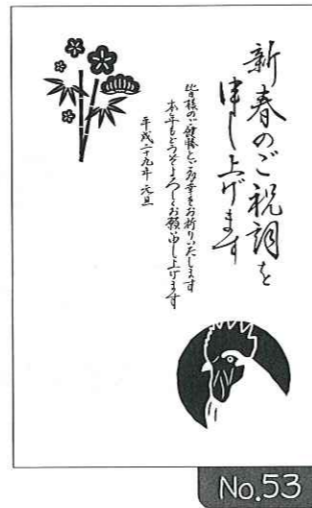 新春のご祝詞を
申し上げます
皆様のご健勝とご多幸をお祈りいたします
本年もどうぞよろしくお願い申し上げます
平成二十九年 元旦
No.53